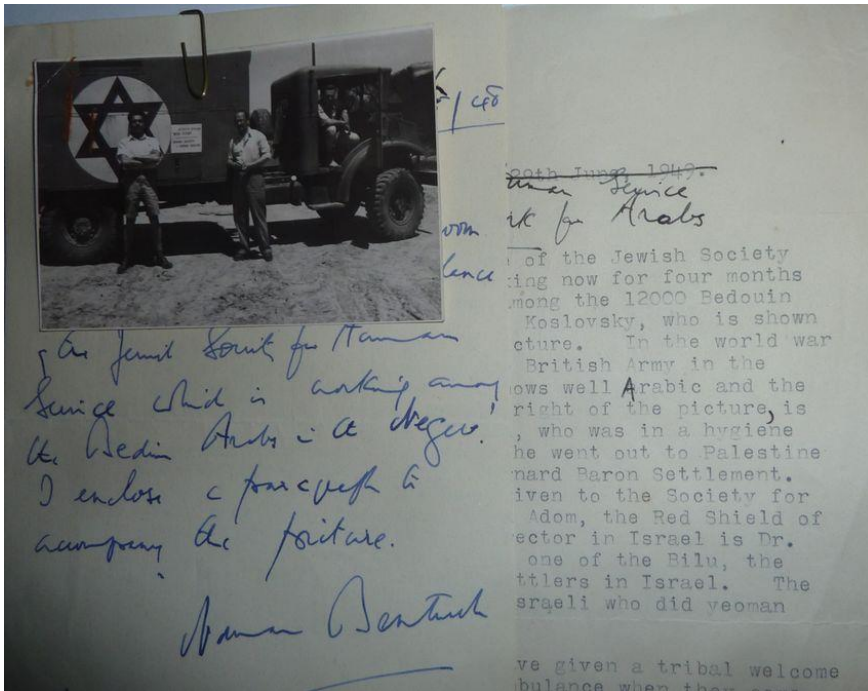 lance
the Jewish Society for Human
Service which is working among
the Bedouin Arabs in the Negev.
I enclose a paragraph to
accompany the picture.
Norman Bentwich
20th June, 1949.
uman Service
rk for Arabs
of the Jewish Society
ing now for four months
among the 12000 Bedouin
Koslovsky, who is shown
cture. In the world war
British Army in the
ows well Arabic and the
right of the picture, is
, who was in a hygiene
he went out to Palestine
nard Baron Settlement.
iven to the Society for
Adom, the Red Shield of
ector in Israel is Dr.
one of the Bilu, the
ttlers in Israel. The
sraeli who did yeoman
ve given a tribal welcome
bulance when they